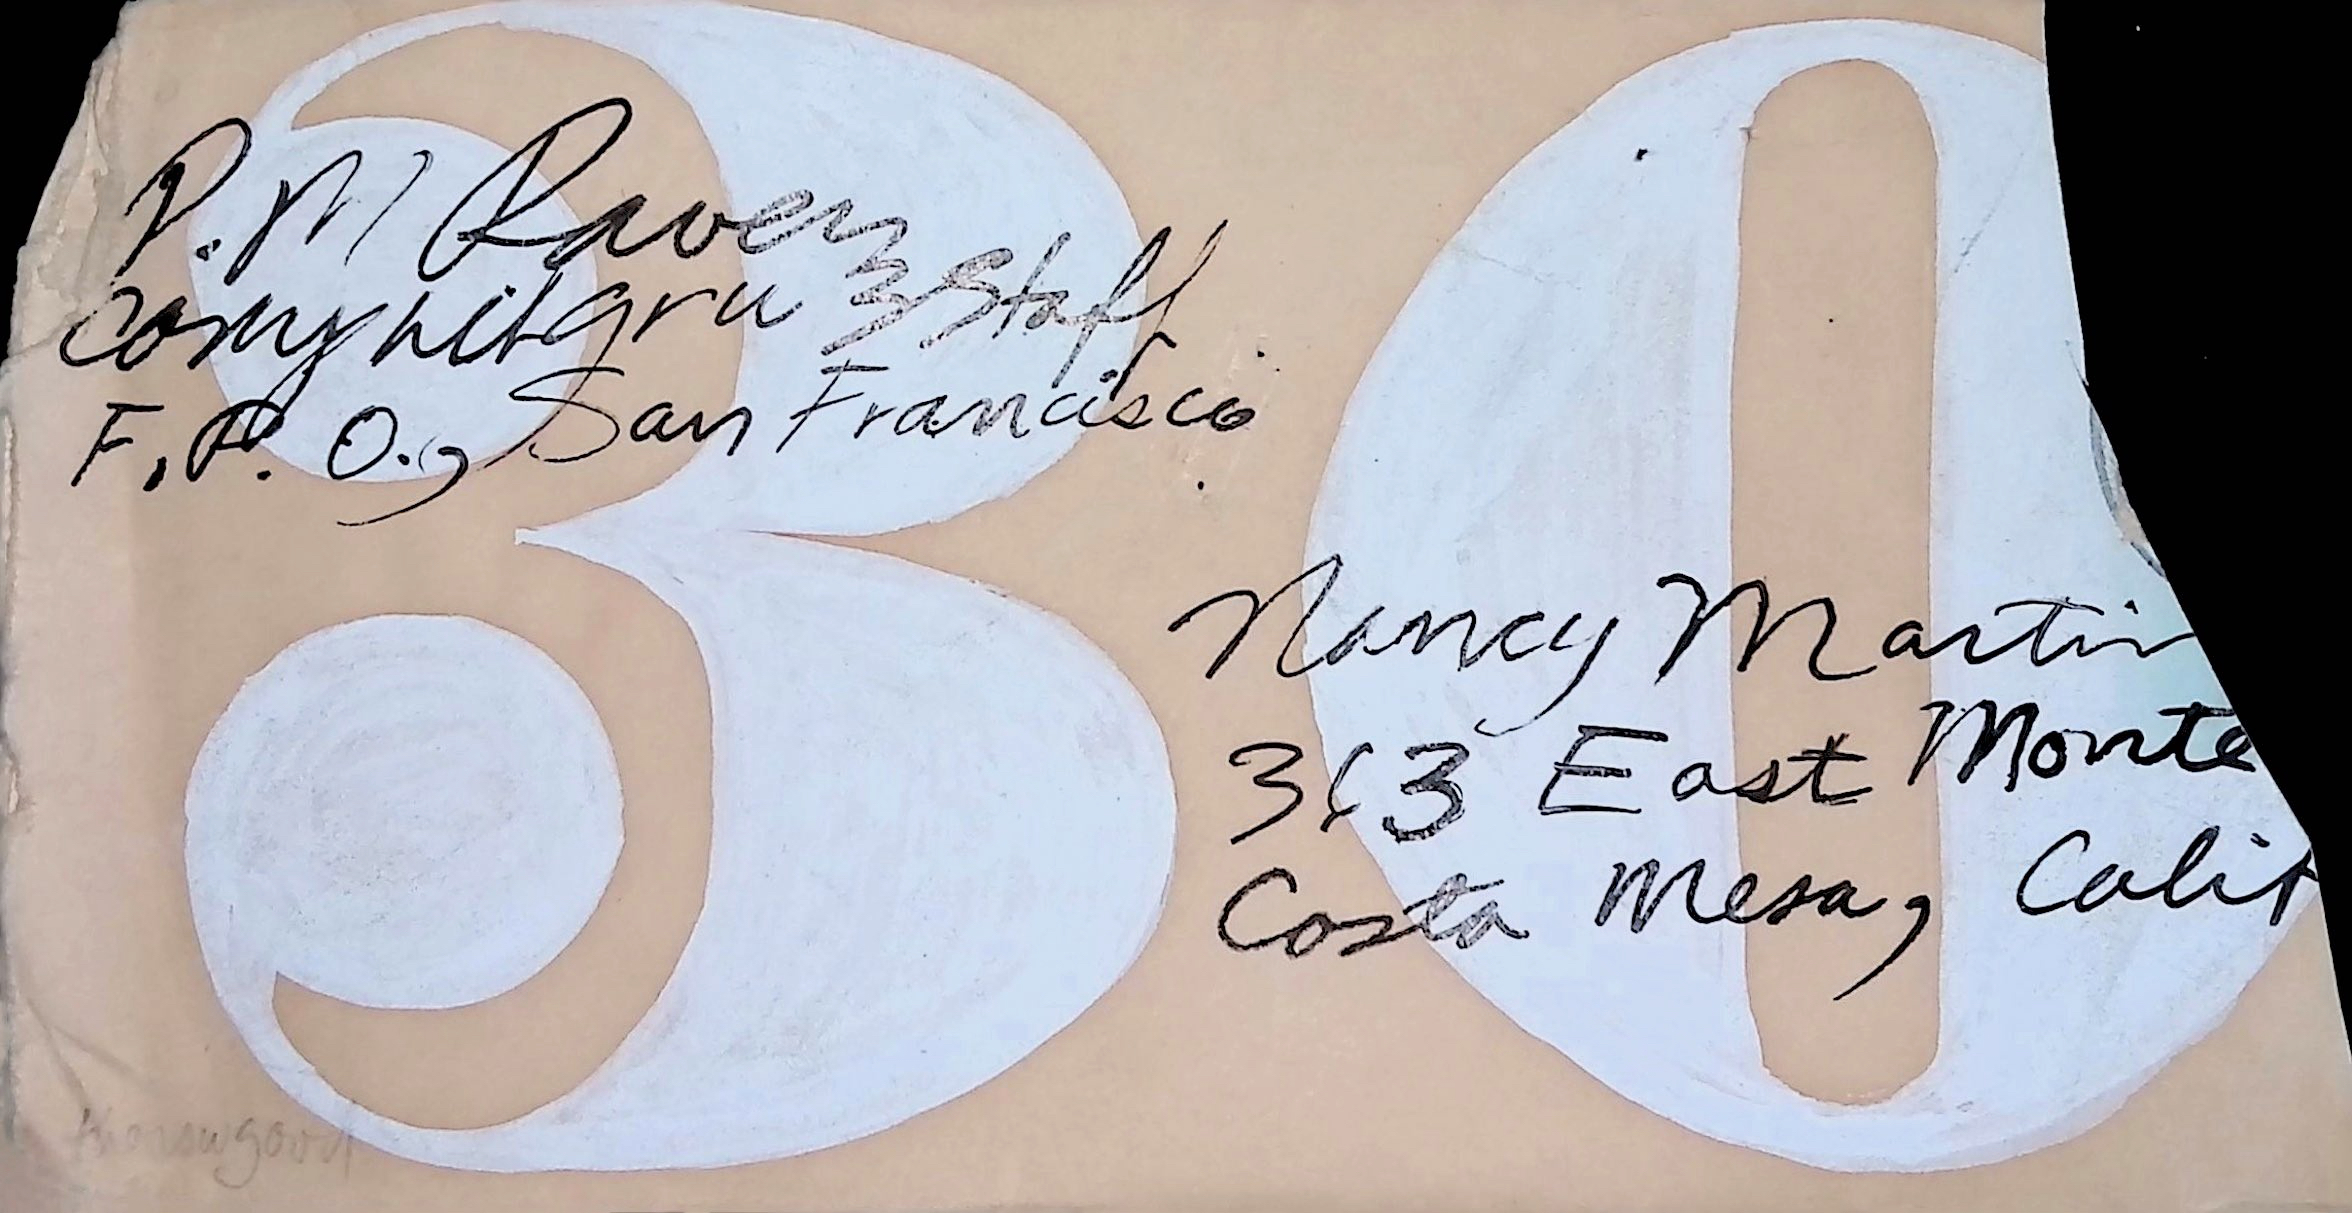 30
P. M Raven
comphibgru 3 Staff
F. P. O., San Francisco
Nancy Martin
363 East Monte
Costa Mesa, Calif